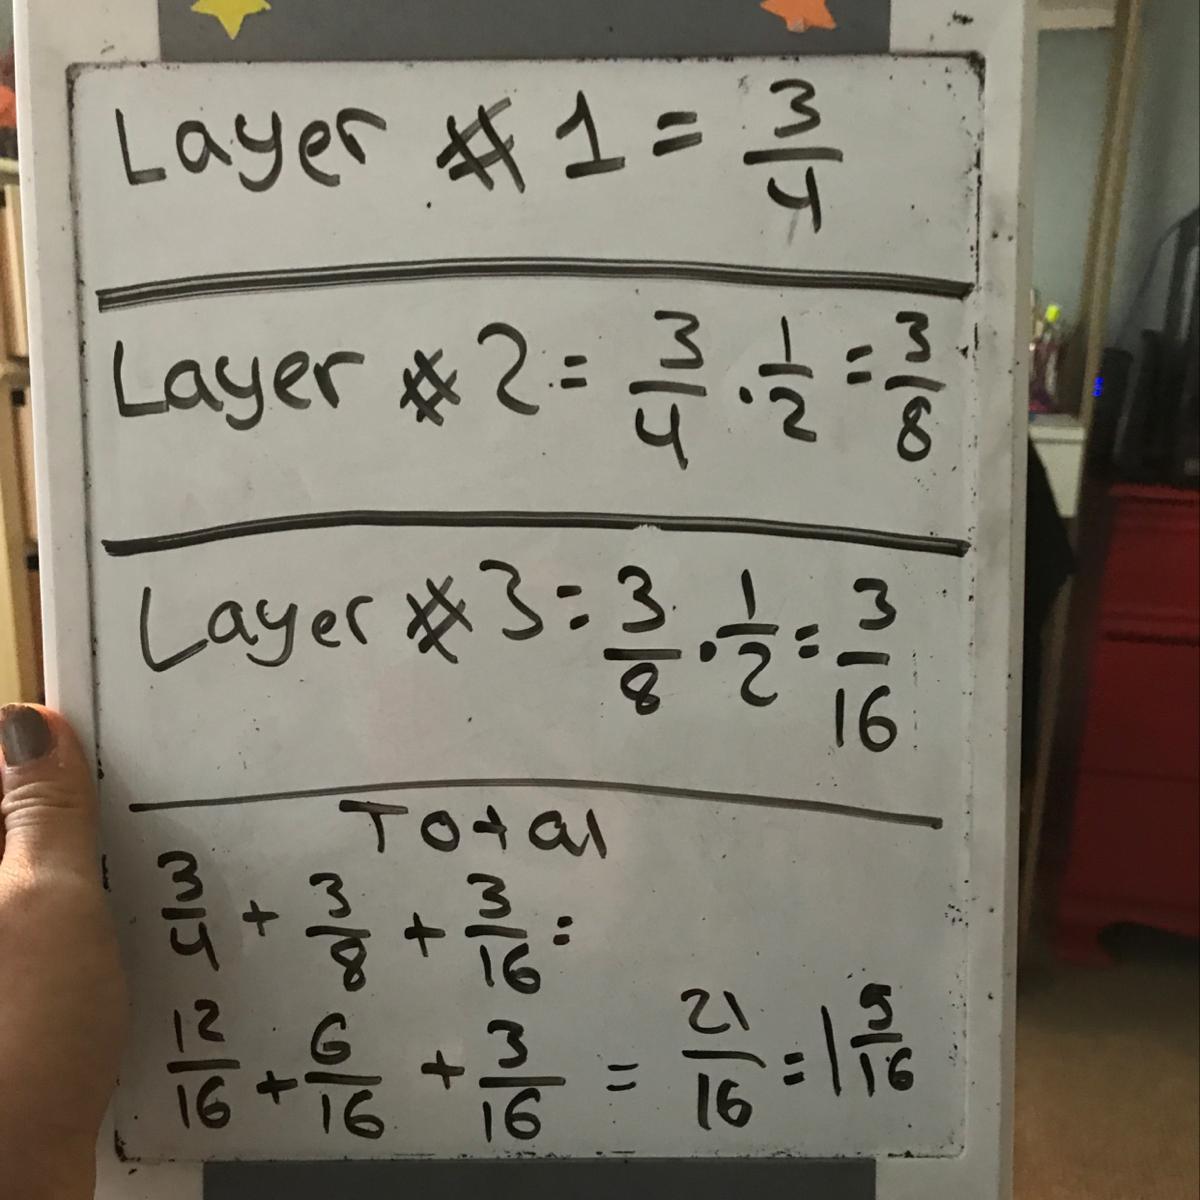 Layer # 1 = 3/4
Layer # 2 = 3/4 · 1/2 = 3/8
Layer # 3 = 3/8 · 1/2 = 3/16
Total
3/4 + 3/8 + 3/16 =
12/16 + 6/16 + 3/16 = 21/16 = 1 5/16